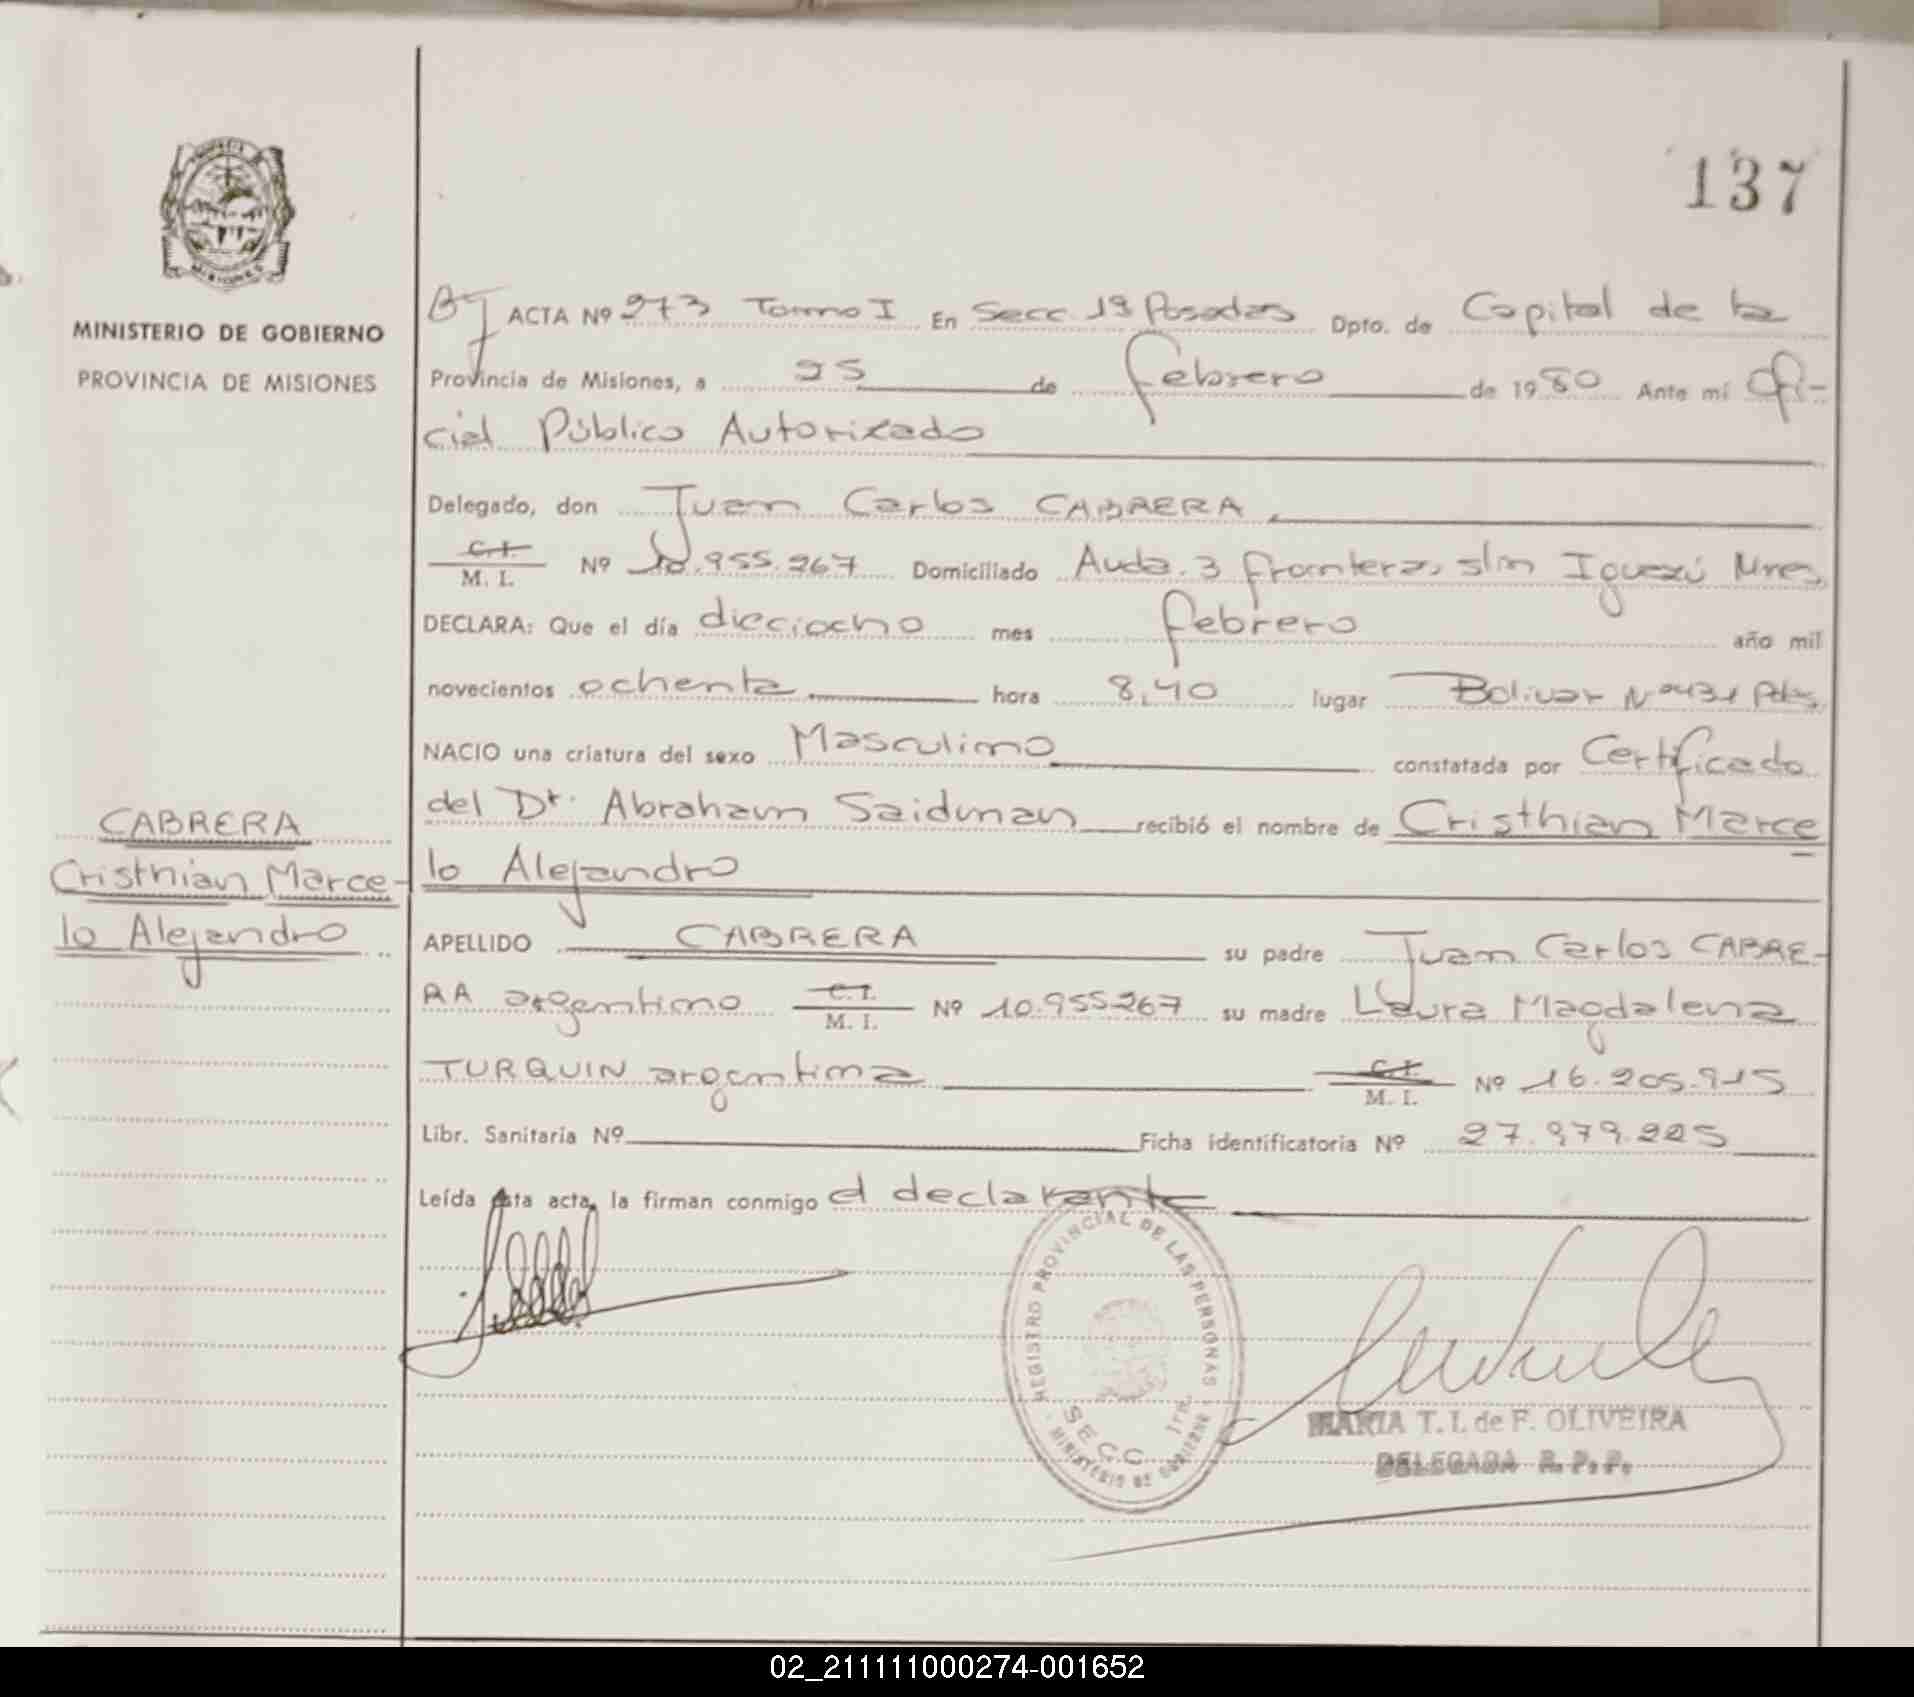 137
MINISTERIO DE GOBIERNO
PROVINCIA DE MISIONES
ACTA Nº 273 Tomo I En Secc. 1ª Posadas Dpto. de Capital de la
Provincia de Misiones, a 25 de febrero de 1980 Ante mí Ofi-
cial Público Autorizado
Delegado, don Juan Carlos CABRERA
C.I. M. I. Nº 10.955.267 Domiciliado Avda. 3 fronteras, s/n Iguazú Mnes,
DECLARA: Que el día dieciocho mes febrero año mil
novecientos ochenta hora 8,40 lugar Bolivar Nº Pdas,
NACIO una criatura del sexo Masculino constatada por Certificado
del Dr. Abraham Saidman recibió el nombre de Cristhian Marce
lo Alejandro
CABRERA
Cristhian Marce-
lo Alejandro
APELLIDO CABRERA su padre Juan Carlos CABRE-
RA argentino C.I. M. I. Nº 10.955.267 su madre Laura Magdalena
TURQUIN argentina C.I. M. I. Nº 16.205.915
Libr. Sanitaria Nº Ficha identificatoria Nº 27.979.225
Leída esta acta, la firman conmigo el declarante
REGISTRO PROVINCIAL DE LAS PERSONAS
SECC. 1ra.
MINISTERIO DE GOBIERNO
MARIA T. I. de F. OLIVEIRA
DELEGADA R. P. P.
02_211111000274-001652